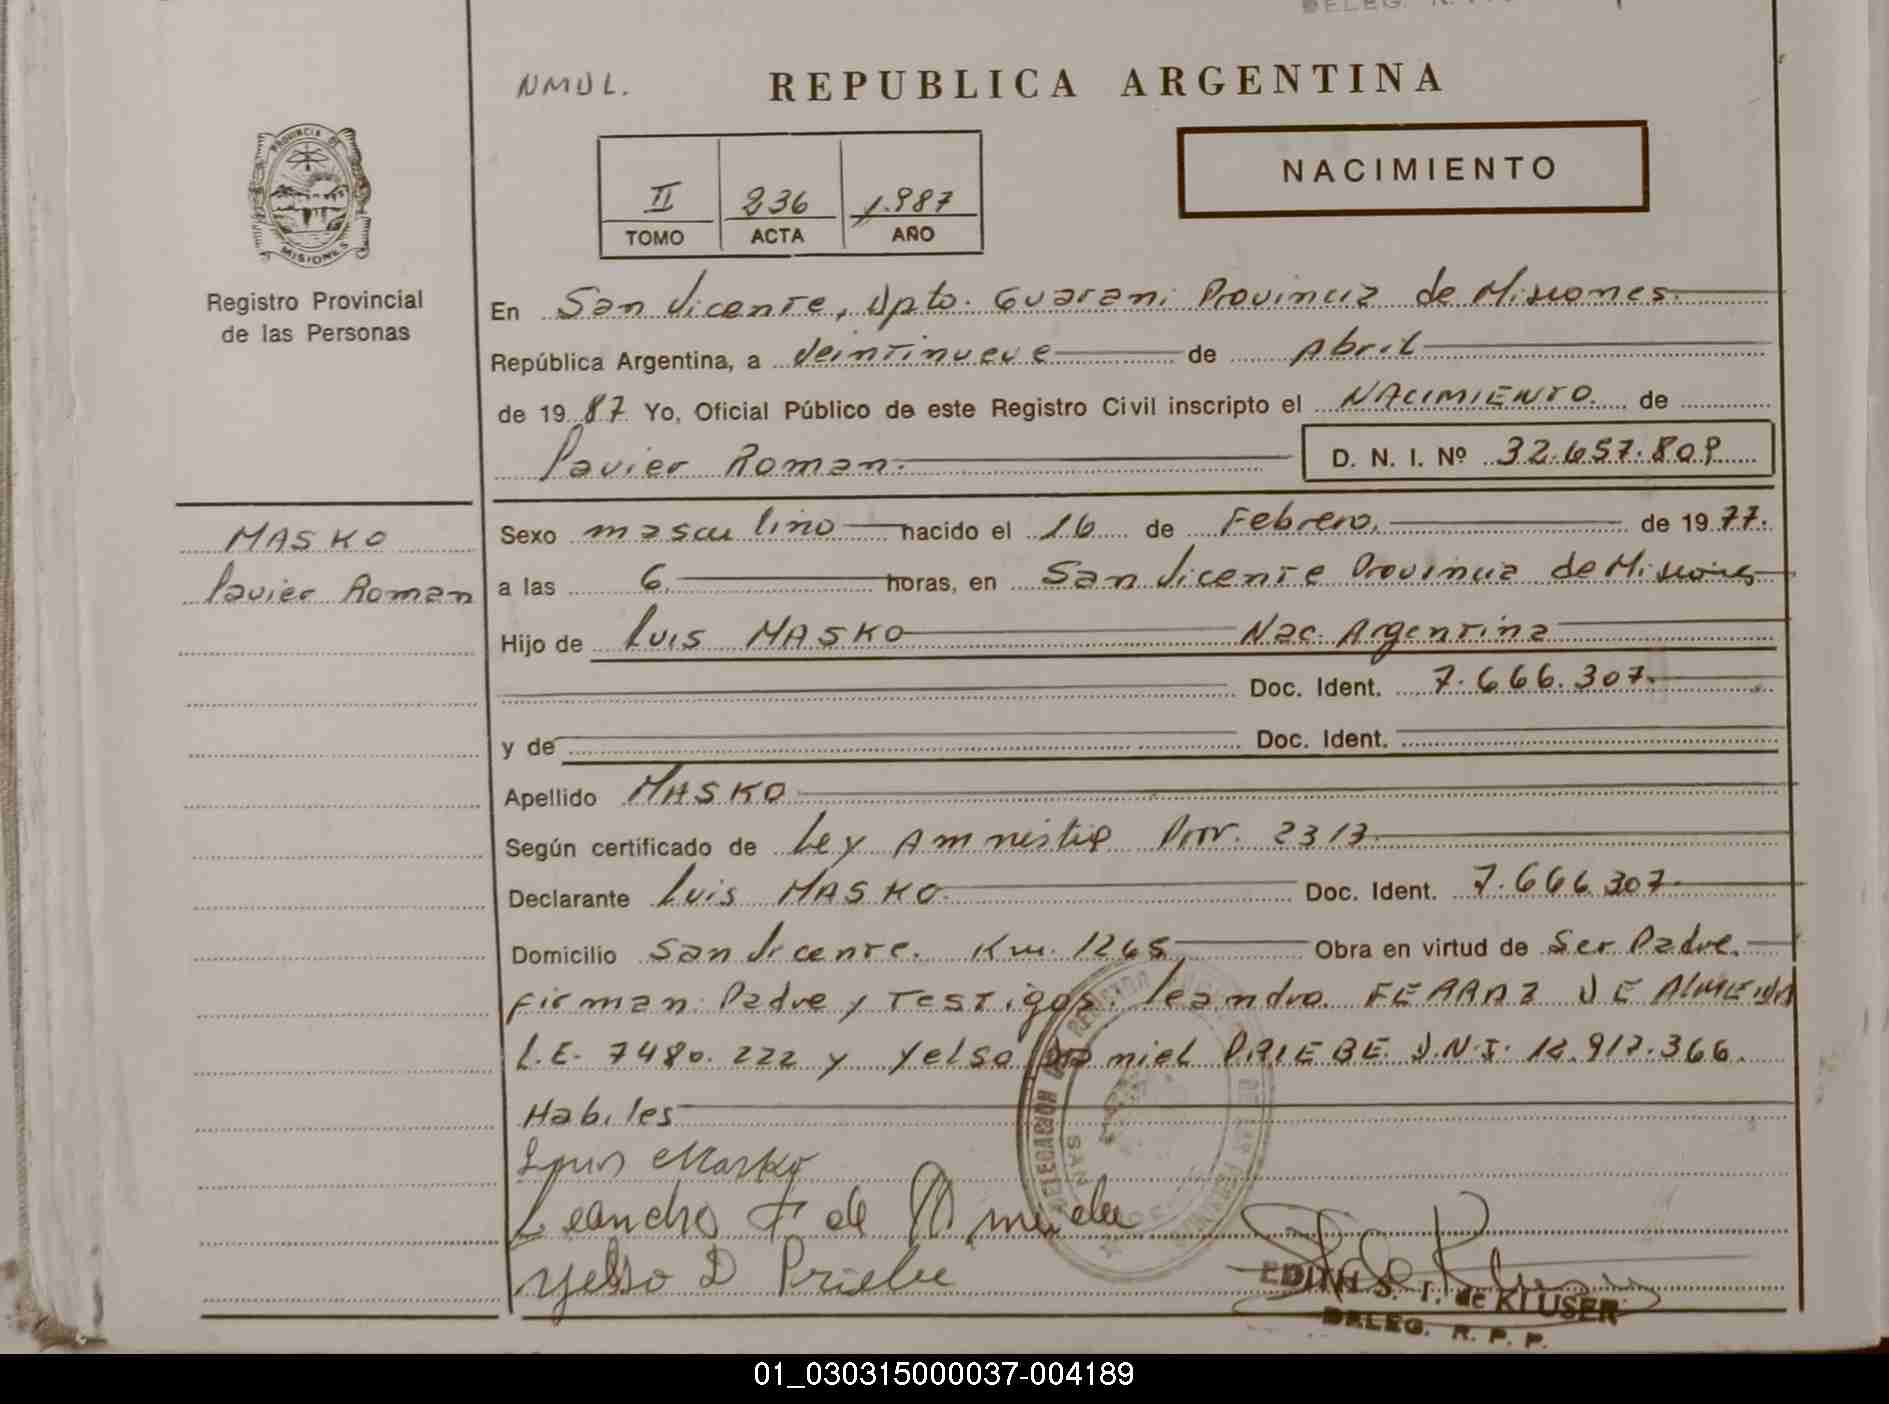 DELEG. R.
NMUL.
REPUBLICA ARGENTINA
PROVINCIA DE
MISIONES
NACIMIENTO
II 236 1.987
TOMO ACTA AÑO
Registro Provincial
de las Personas
En San Vicente, Dpto. Guarani Provincia de Misiones
República Argentina, a Veintinueve de Abril
de 19 87 Yo, Oficial Público de este Registro Civil inscripto el NACIMIENTO de
Javier Roman. D. N. I. Nº 32.657.809
MASKO
Javier Roman
Sexo masculino nacido el 16 de Febrero, de 19 77.
a las 6 horas, en San Vicente Provincia de Misiones
Hijo de Luis MASKO Nac. Argentina
Doc. Ident. 7.666.307.
y de Doc. Ident.
Apellido MASKO
Según certificado de Ley Amnistia 2313
Declarante Luis MASKO Doc. Ident. 7.666.307
Domicilio San Vicente. Km. 1265 Obra en virtud de Ser Padre.
Firman: Padre y Testigos. Leandro FERRAZ DE ALMEIDA
L.E. 7480.222 y Yelso Daniel PRIEBE D.N.I. 18.917.366.
Habiles
Luis Masko
Leandro F de Almeida
Yelso D Priebe
DELEGACION
SAN
EDITH S. T. de KLUSER
DELEG. R. P. P.
01_030315000037-004189